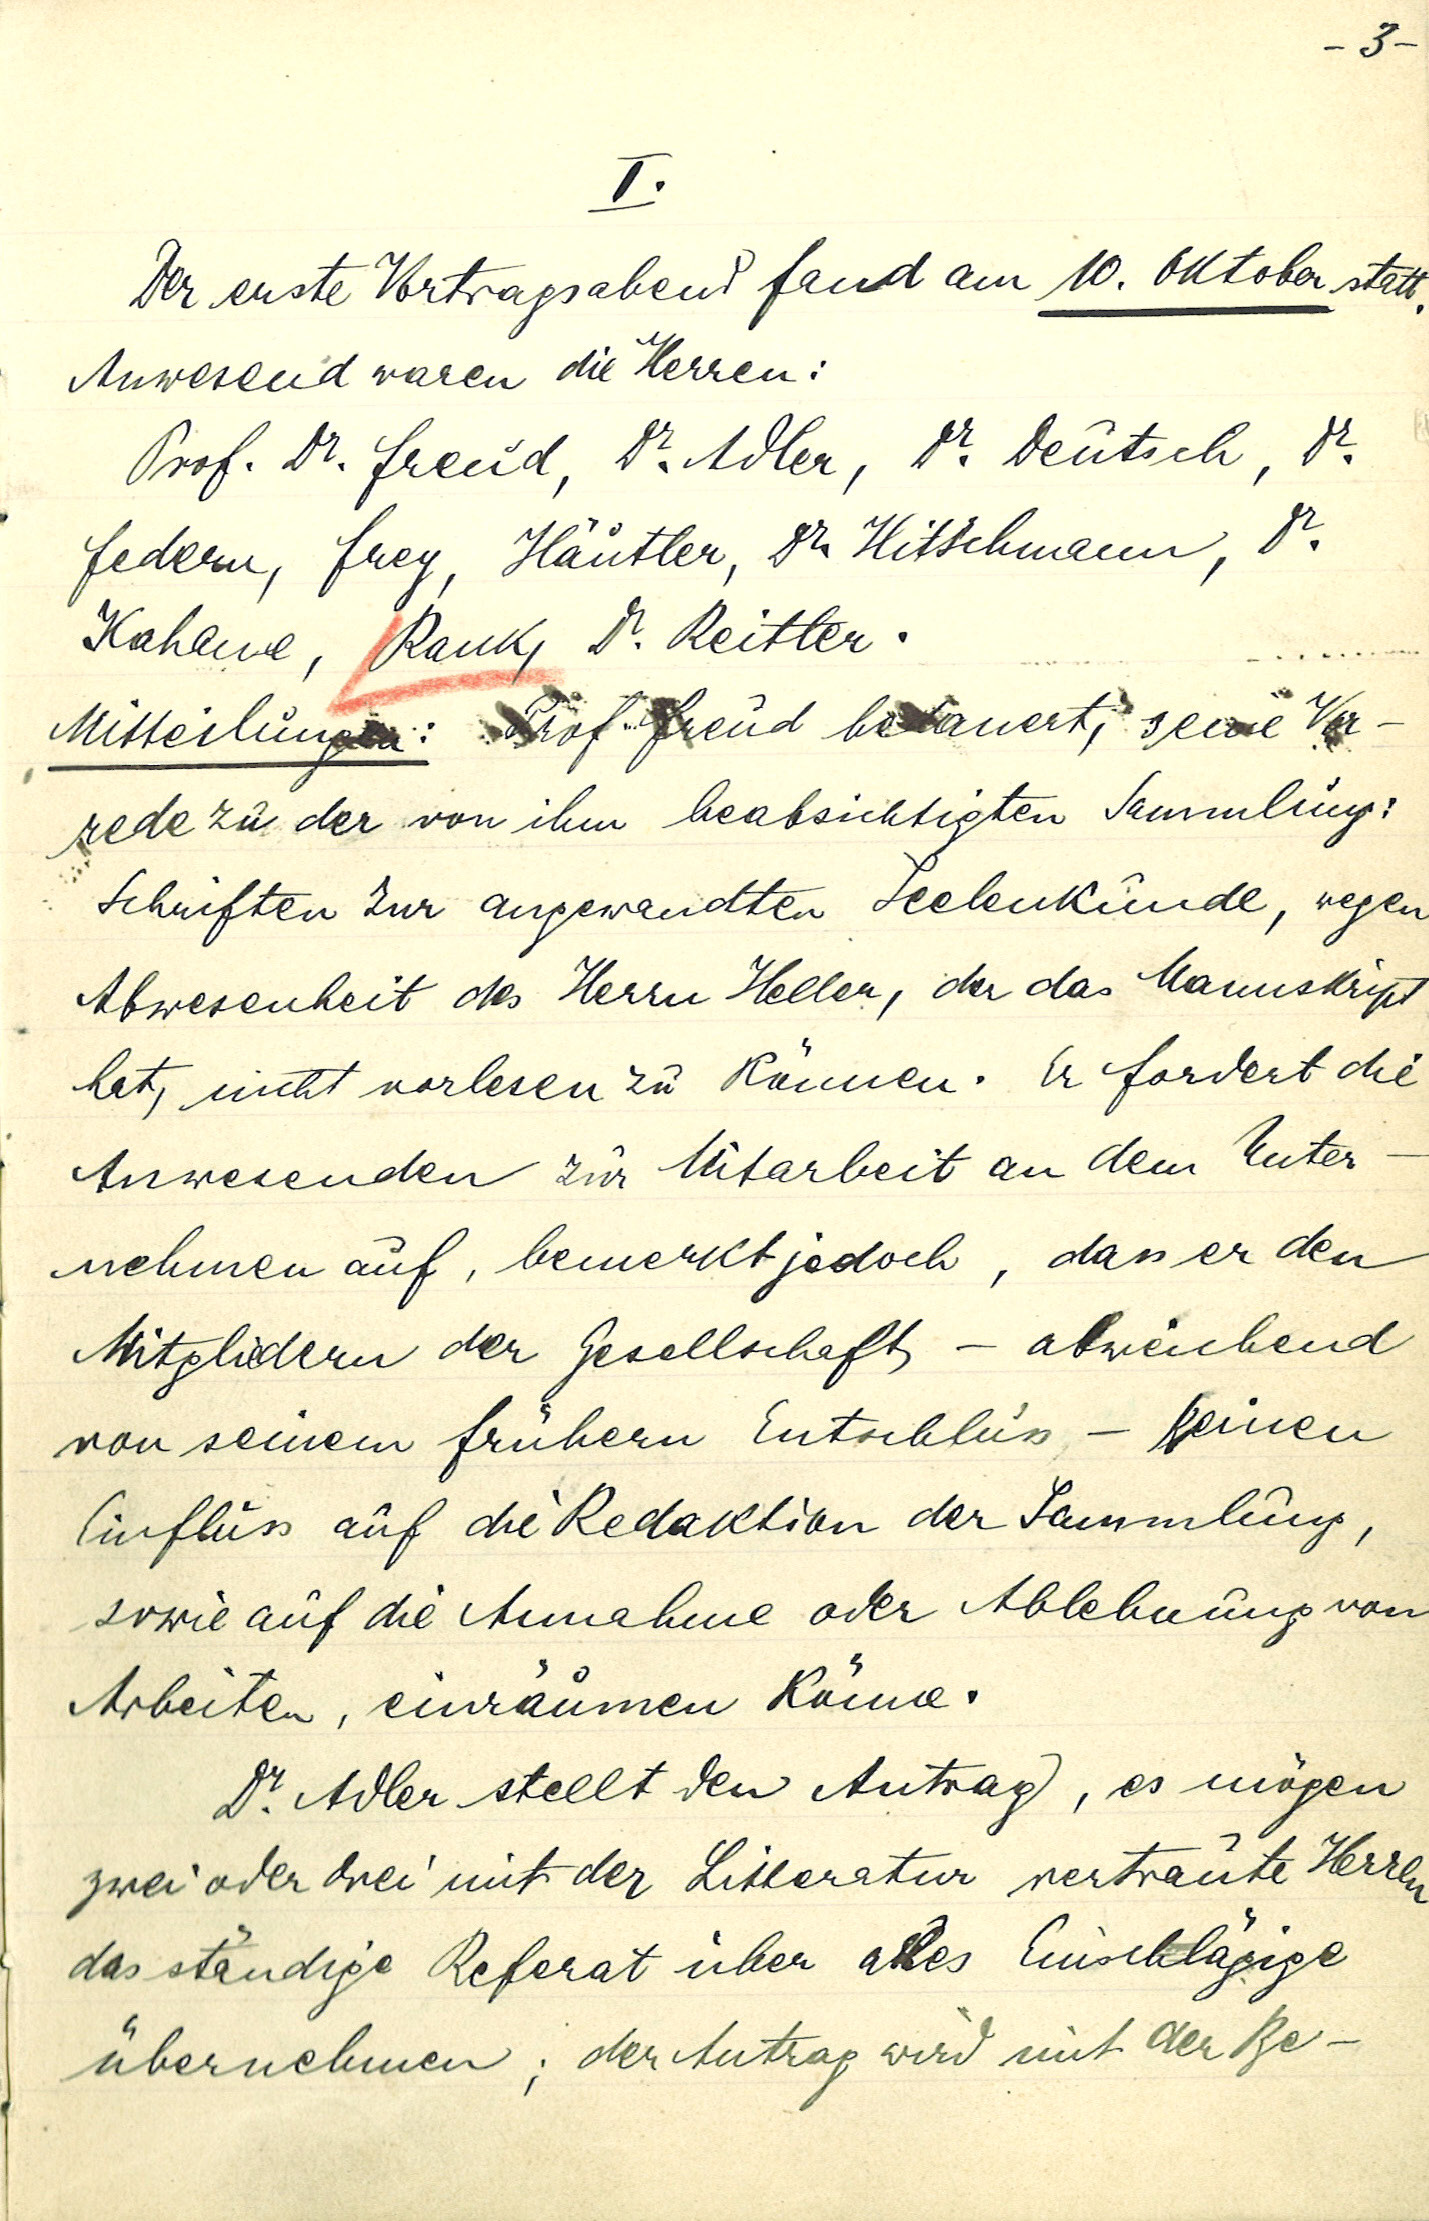 - 3 -
I.
Der erste Vortragsabend fand am 10. Oktober statt.
Anwesend waren die Herren:
Prof. Dr. Freud, Dr. Adler, Dr. Deutsch, Dr.
Federn, Frey, Häutler, Dr. Hitschmann, Dr.
Kahane, Rank, Dr. Reitler.
Mitteilungen: Prof Freud bedauert, seine Vor-
rede zu der von ihm beabsichtigten Sammlung:
Schriften zur angewandten Seelenkunde, wegen
Abwesenheit des Herrn Heller, der das Manuskript
hat, nicht vorlesen zu können. Er fordert die
Anwesenden zur Mitarbeit an dem Unter-
nehmen auf, bemerkt jedoch, dass er den
Mitgliedern der Gesellschaft, - abweichend
von seinem frühern Entschluss, - keinen
Einfluss auf die Redaktion der Sammlung,
sowie auf die Annahme oder Ablehnung von
Arbeiten, einräumen könne.
Dr. Adler stellt den Antrag, es mögen
zwei oder drei mit der Litteratur vertraute Herren
das ständige Referat über alles Einschlägige
übernehmen; der Antrag wird mit der Be-